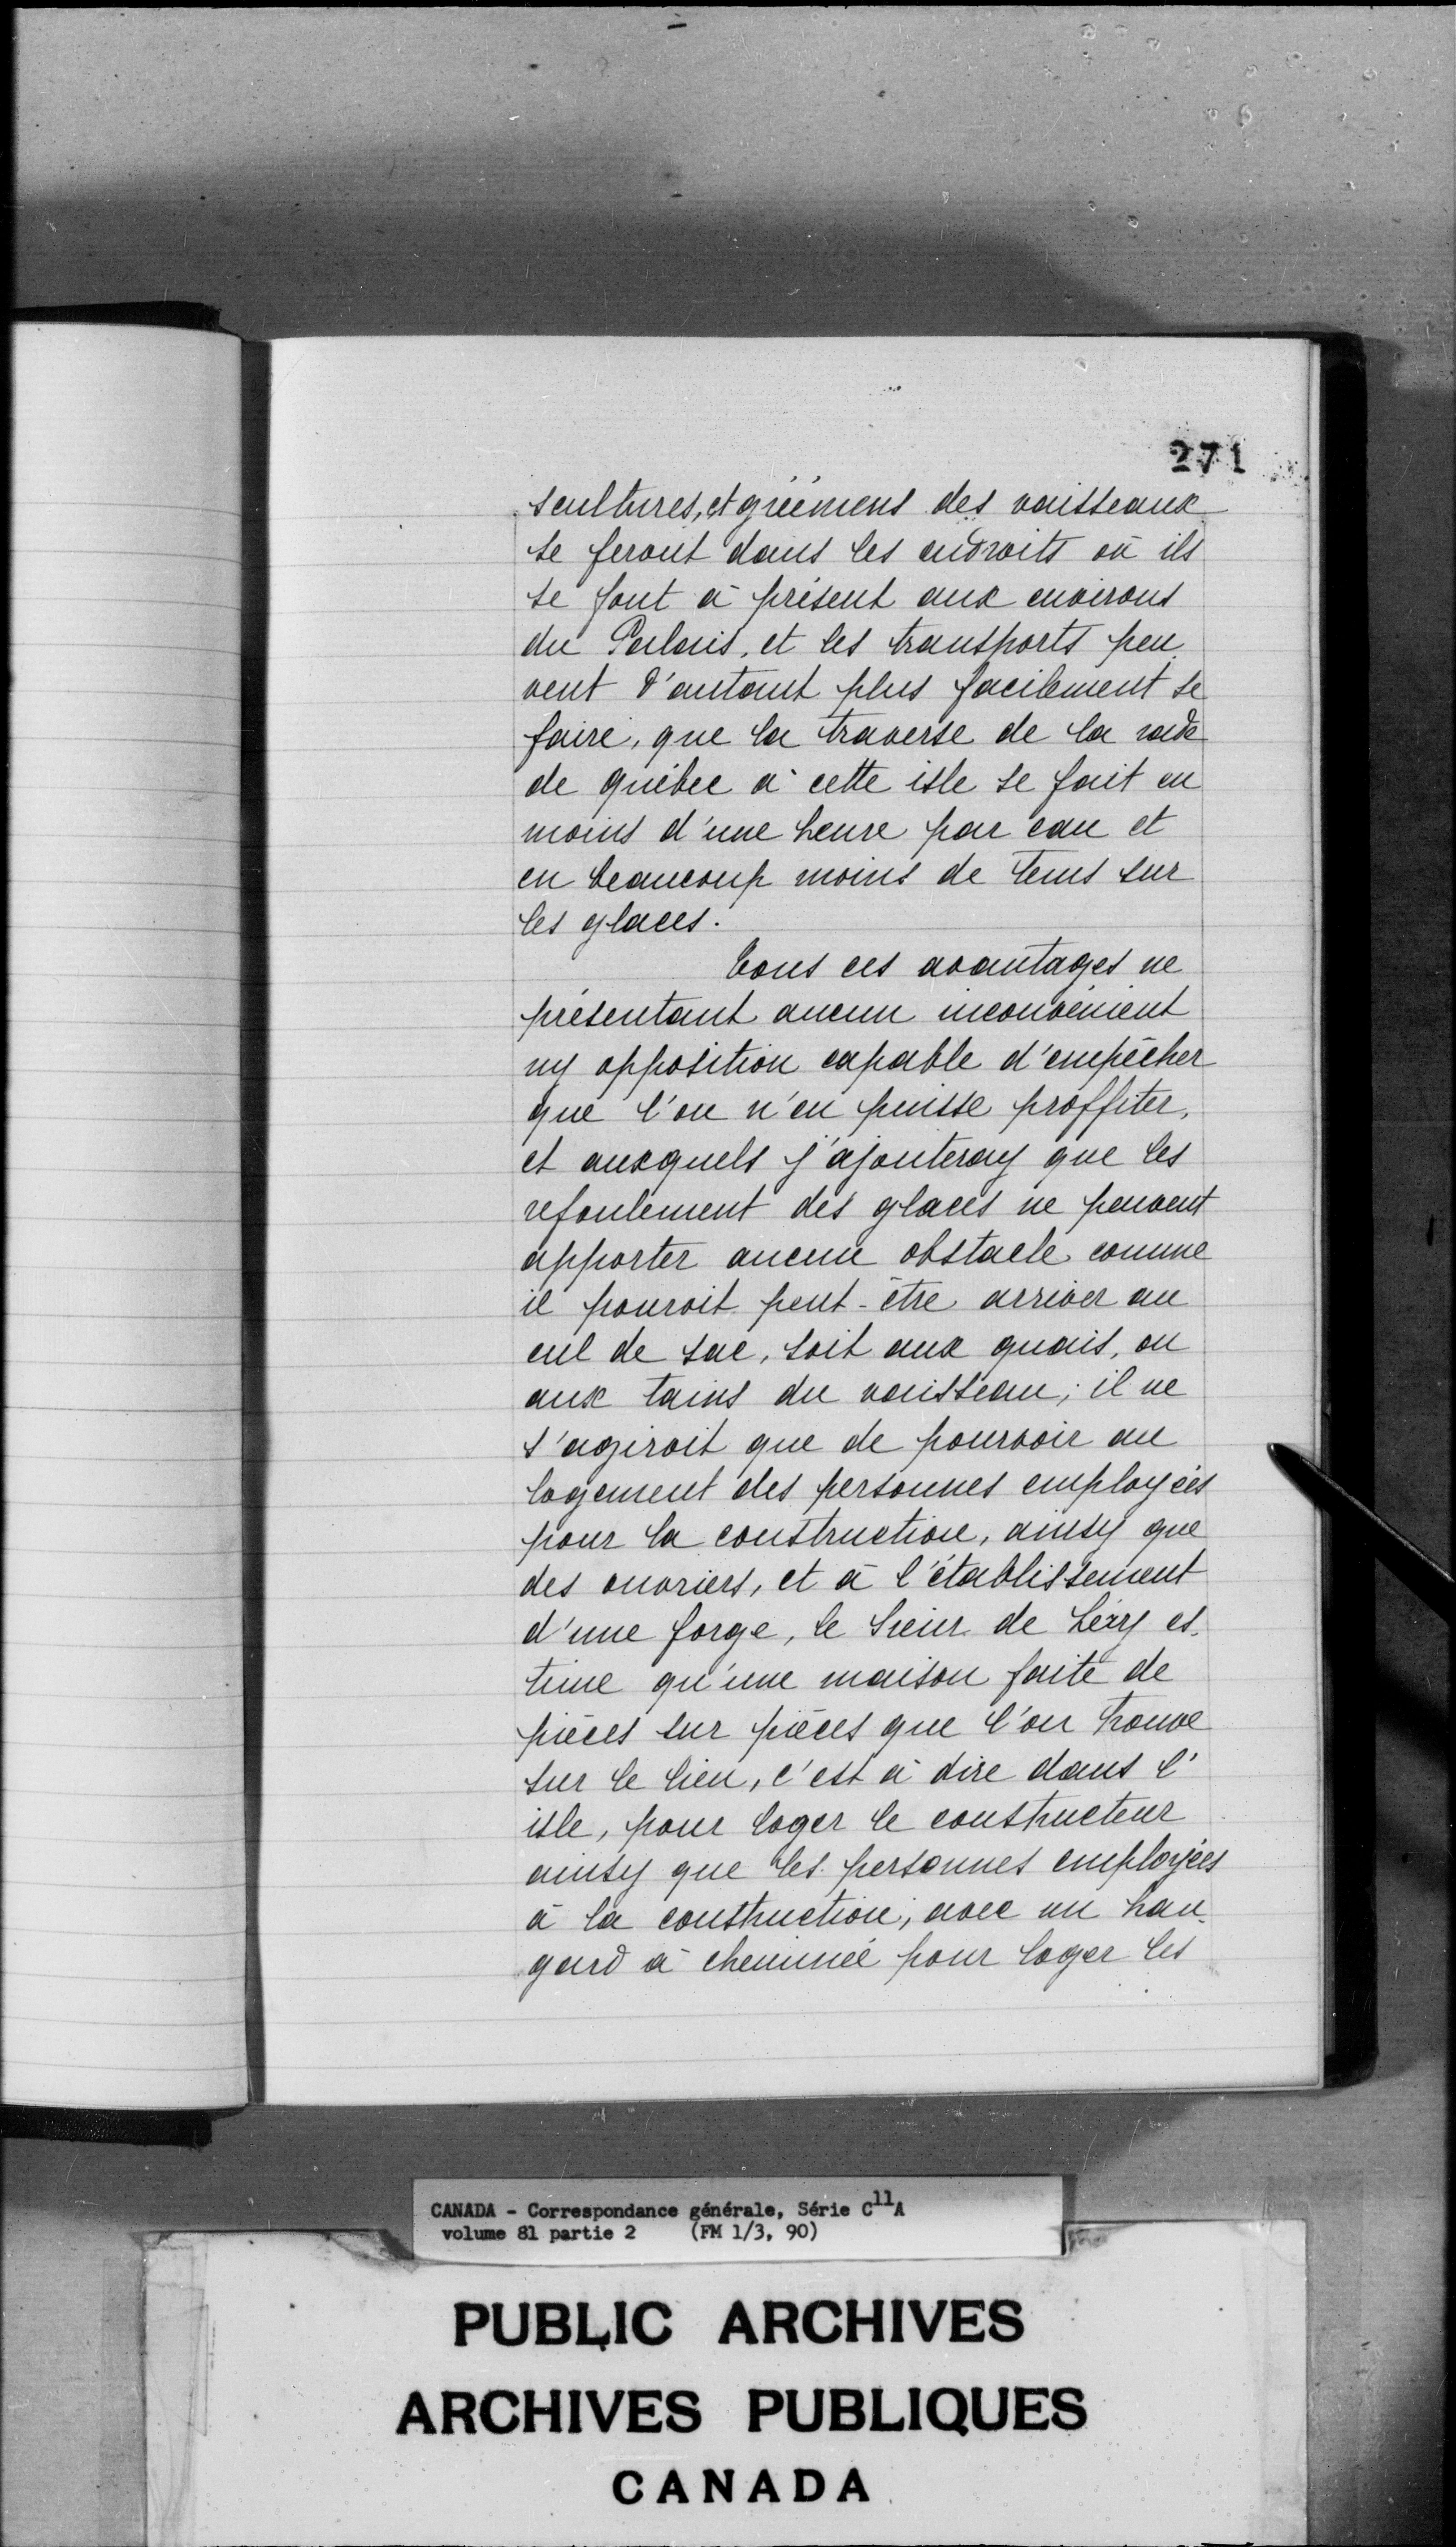 271
scultures, et gréemens des vaisseaux
se feront dans les endroits où ils
se font à présent aux environs
du Palais, et les transports peu
vent d'autant plus facilement se
faire, que la traverse de la rade
de québec à cette isle se fait en
moins d'une heure par eau et
en beaucoup moins de tems sur
les glaces.
Tous ces avantages ne
présentant aucun inconvénient
ny opposition capable d'empêcher
que l'on n'en puisse proffiter,
et auxquels j'ajouteray que les
refoulement des glaces ne peuvent
apporter aucune obstacle comme
il pouroit peut-être arriver au
cul de sac, soit aux quais, ou
aux tains du vaisseau; il ne
s'agiroit que de pourvoir au
logement des personnes employées
pour la construction, ainsy que
des ouvriers, et à l'établissement
d'une forge, le Sieur de Léry es-
time qu'une maison faite de
pièces sur pièces que l'on trouve
sur le lieu, c'est à dire dans l'
isle, pour loger le constructeur
ainsy que les personnes employées
à la construction, avec un han-
gard à cheminée pour loger les
CANADA - Correspondance générale, Série C11A
volume 81 partie 2 (FM 1/3, 90)
PUBLIC ARCHIVES
ARCHIVES PUBLIQUES
CANADA